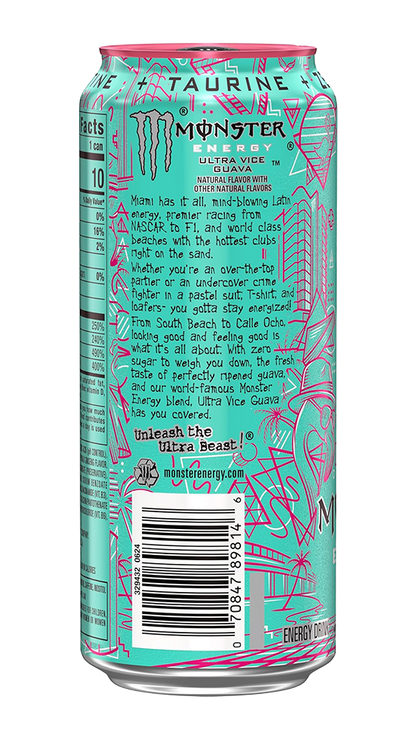 + TAURINE +
Facts
1 can
10
% Daily Value*
0%
16%
2%
0%
250%
240%
490%
400%
MONSTER
ENERGY ®
ULTRA VICE
GUAVA ™
NATURAL FLAVOR WITH
OTHER NATURAL FLAVORS
Miami has it all, mind-blowing Latin
energy, premier racing from
NASCAR to F1, and world class
beaches with the hottest clubs
right on the sand.
Whether you're an over-the-top
partier or an undercover crime
fighter in a pastel suit, T-shirt, and
loafers- you gotta stay energized!
From South Beach to Calle Ocho,
looking good and feeling good is
what it's all about. With zero
sugar to weigh you down, the fresh
taste of perfectly ripened guava,
and our world-famous Monster
Energy blend, Ultra Vice Guava
has you covered.
Unleash the
Ultra Beast!®
monsterenergy.com
329432 0624
0 70847 89814 6
ENERGY DRINK